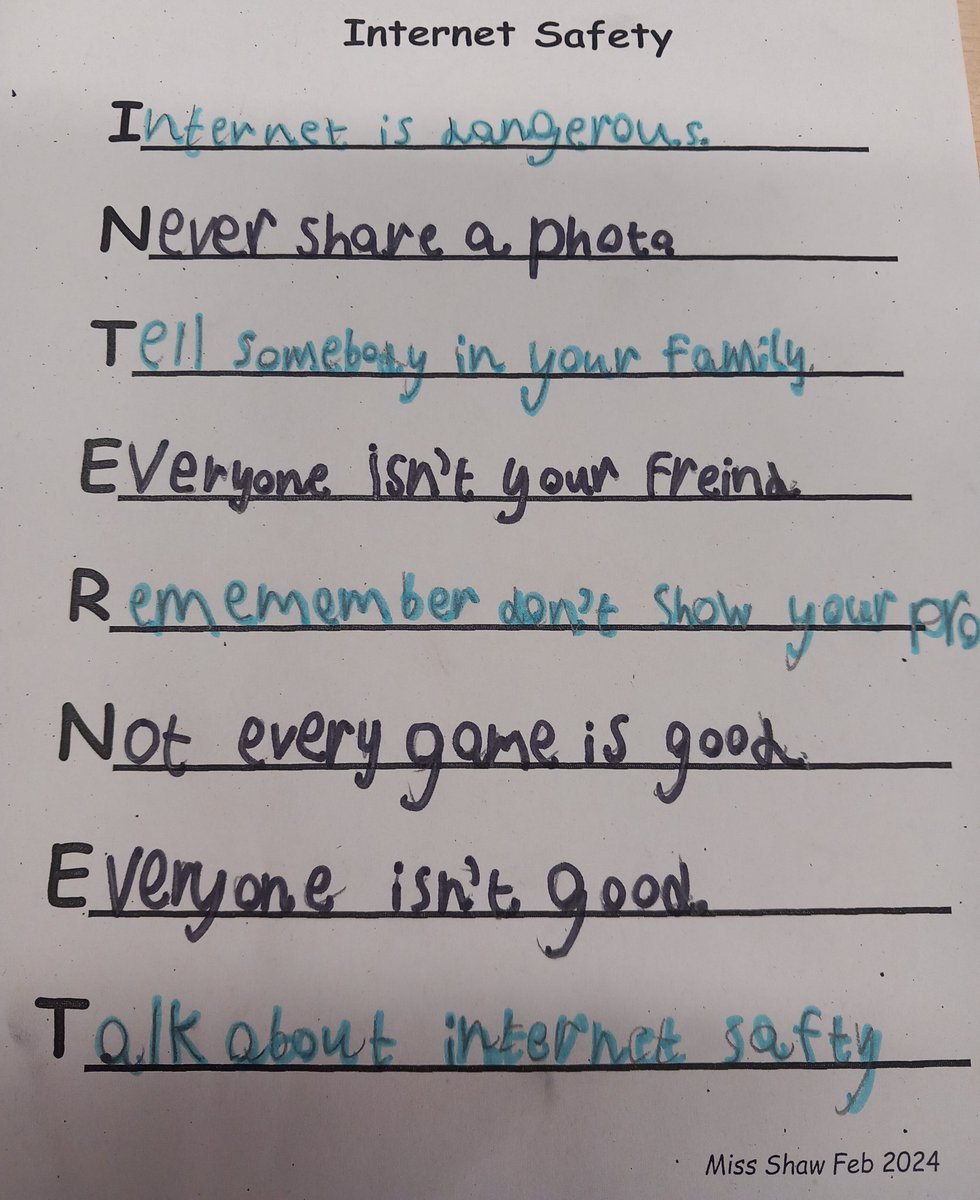 Internet Safety
Internet is dangerous.
Never share a photo
Tell somebody in your family.
Everyone isn't your Freind.
Rememember don't show your pro
Not every game is good.
Everyone isn't good.
Talk about internet safty
Miss Shaw Feb 2024